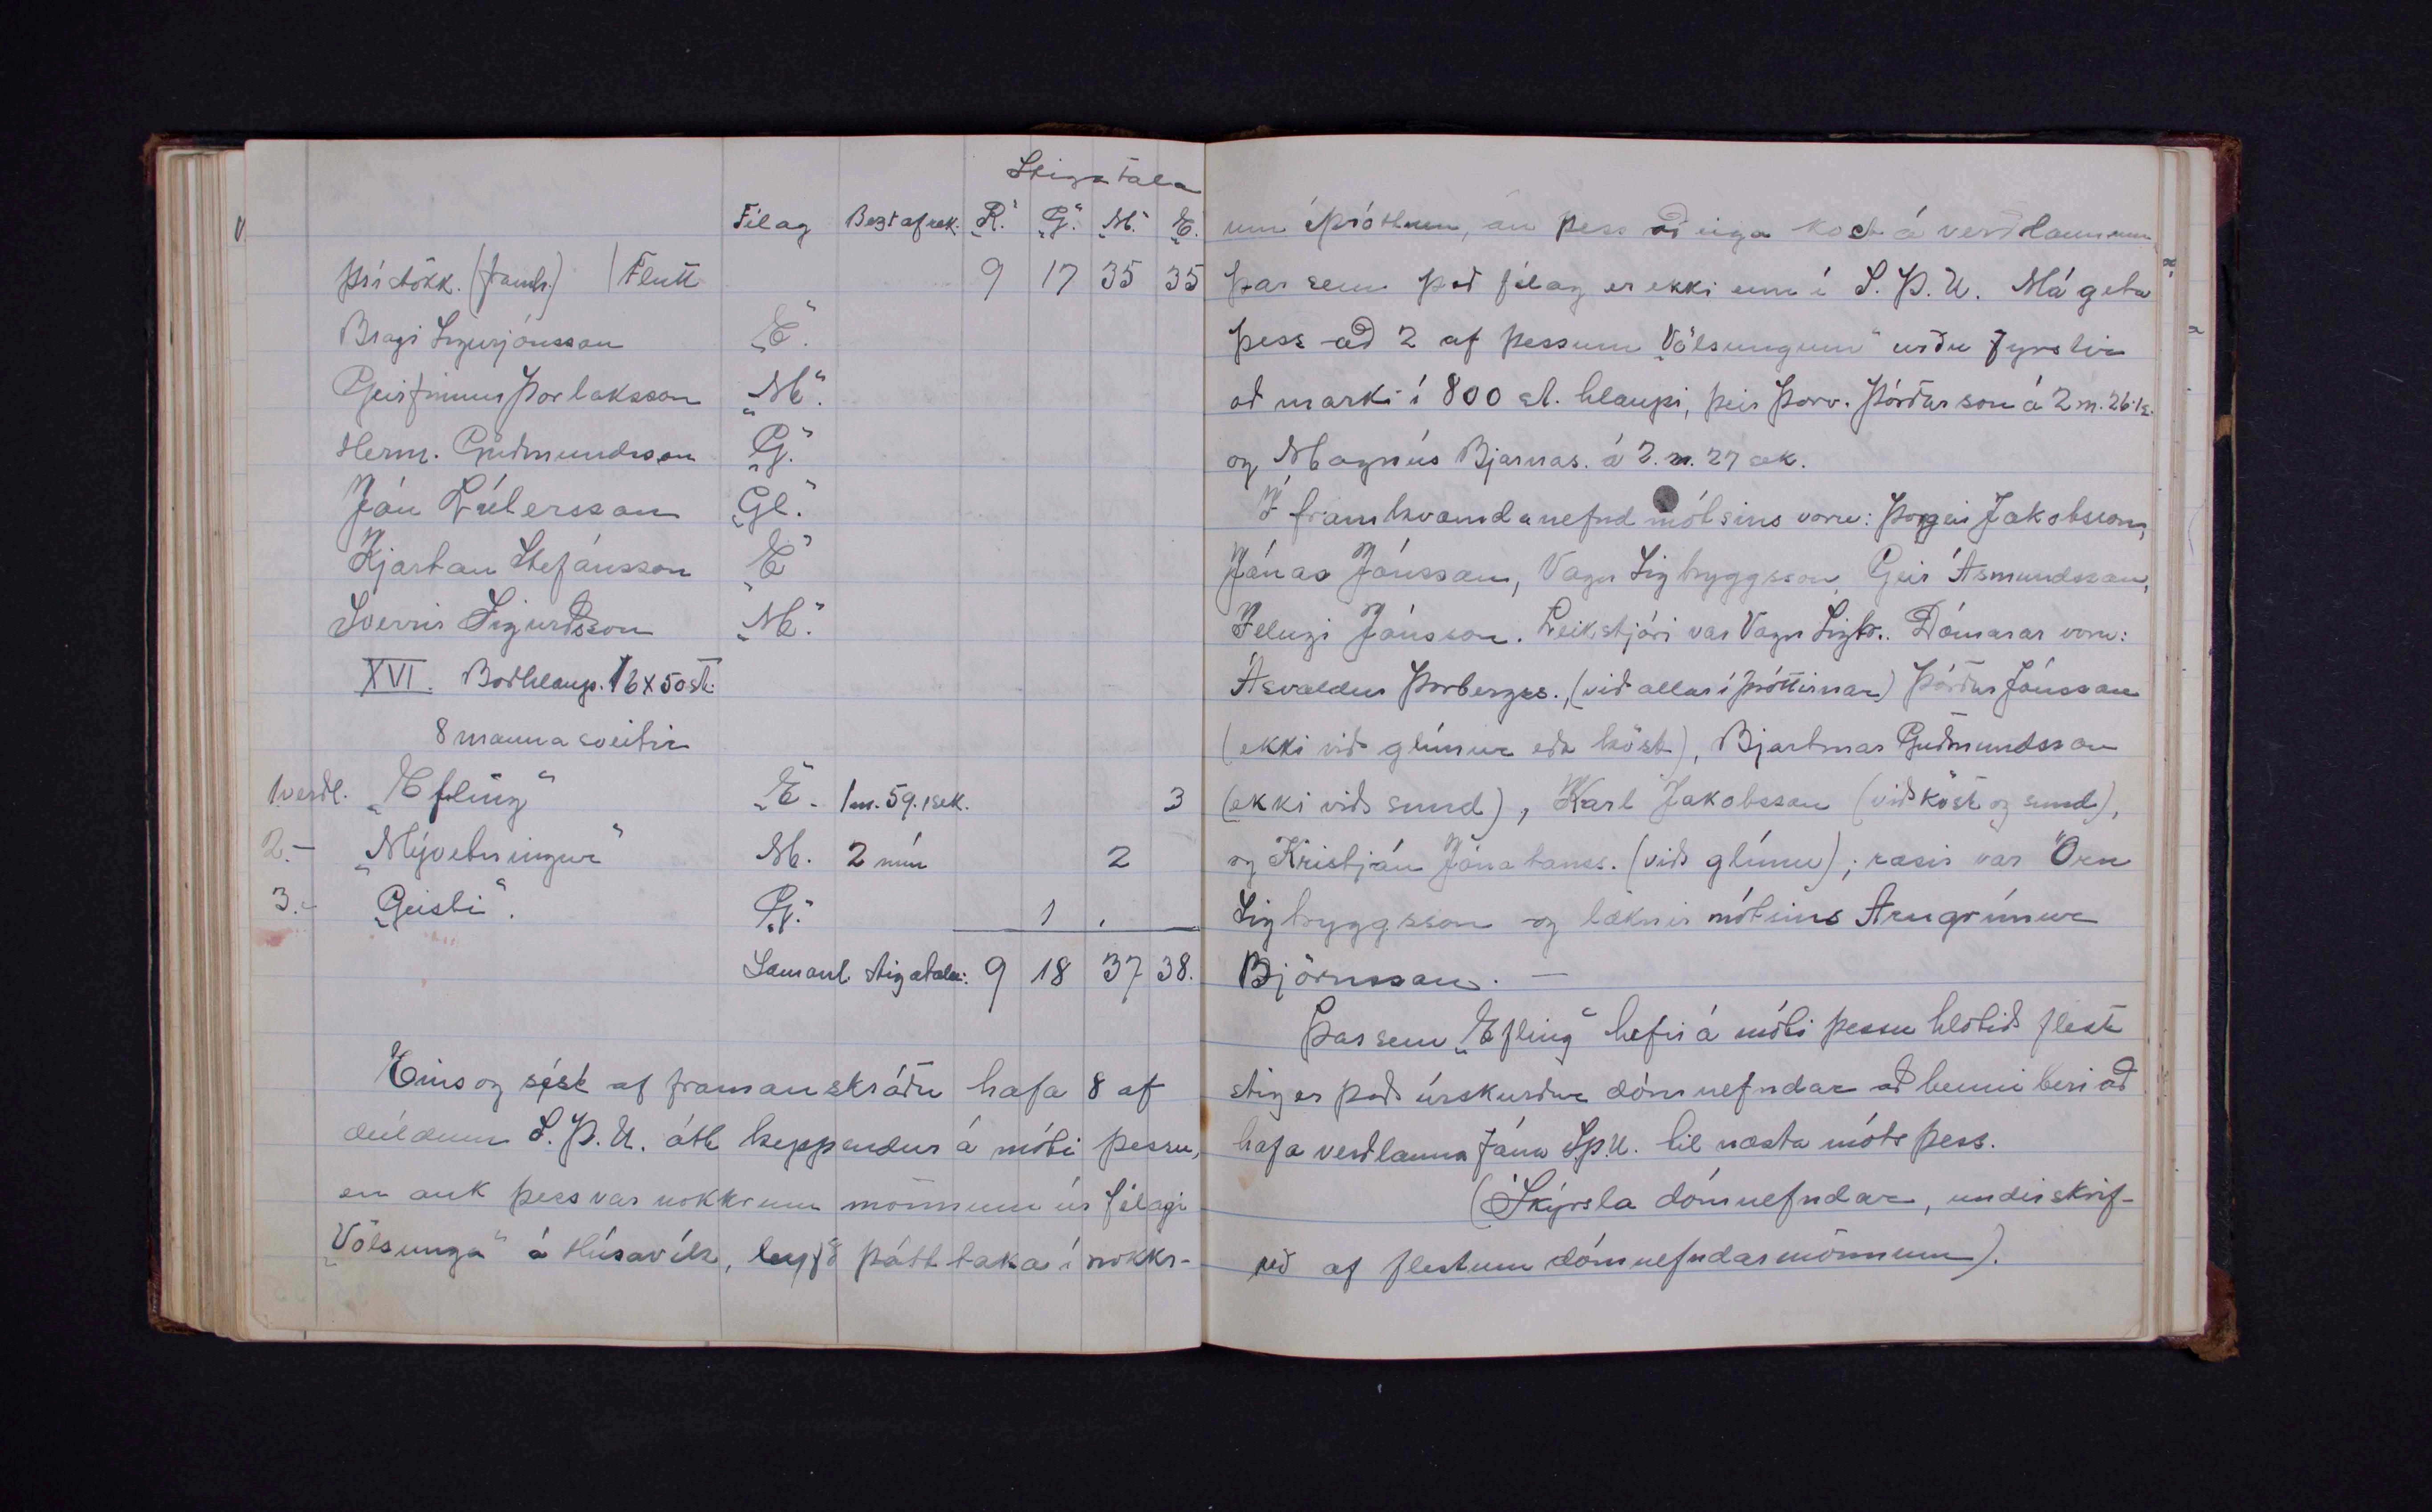 Stigatala
Félag Bezt afrek. „R." „G." „M." „E."
Þrístökk. (framh.) | Flutt 9 17 35 35
Bragi Sigurjónsson „E".
Geirfinnur Þorláksson „M".
Herm. Guðmundsson „G."
Jón Lútersson „Gl."
Kjartan Stefánsson „E"
Sverrir Sigurðsson „M."
XVI. Boðhlaup. 16 x 50 st.
8 manna sveitir
1. verðl. „Efling" „E". 1 m. 59.1 sek. 3
2. - „Mývetningur" M. 2 mín 2
3. - „Geisli". „G." 1 .
Samanl. stigatala: 9 18 37 38.
Eins og sést af framanskráðu hafa 8 af
deildum S.Þ.U. átt keppendur á móti þessu,
en auk þess var nokkrum mönnum úr félagi
„Völsunga" á Húsavík, leyfð þátttaka í nokkr-
um íþróttum, án þess að eiga kost á verðlaunum,
þar sem það félag er ekki enn í S.Þ.U. Má geta
þess að 2 af þessum „Völsungum" urðu fyrstir
að marki í 800 st. hlaupi, þeir Þorv. Þórðarson á 2 m. 26.1 s.
og Magnús Bjarnas. á 2. m. 27 sek.
Í framkvæmdanefnd mótsins voru: Þorgeir Jakobsson,
Jónas Jónsson, Vagn Sigtryggsson, Geir Ásmundsson,
Illugi Jónsson. Leikstjóri var Vagn Sigtr.. Dómarar voru:
Ásvaldur Þorbergss., (við allar íþróttirnar) Þórður Jónsson
(ekki við glímur eða köst), Bjartmar Guðmundsson
(ekki við sund), Karl Jakobsson (við köst og sund),
og Kristján Jónatanss. (við glímu); ræsir var Örn
Sigtryggsson og læknir mótsins Arngrímur
Björnsson. —
Þar sem „Efling" hefir á móti þessu hlotið flest
stig er það úrskurður dómnefndar að henni beri að
hafa verðlauna fána S.þ.U. til næsta móts þess.
(Skýrsla dómnefndar, undirskrif-
uð af flestum dómnefndarmönnum).